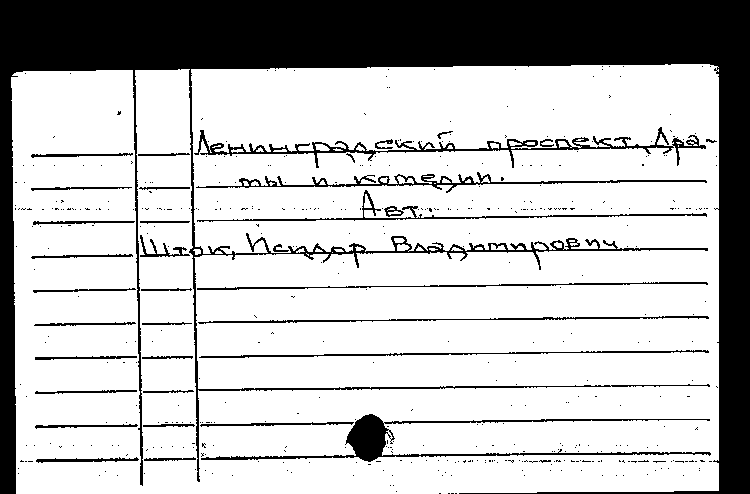 Ленинградский проспект. Дра-
мы и комедии.
Авт.:
Шток, Исидор Владимирович